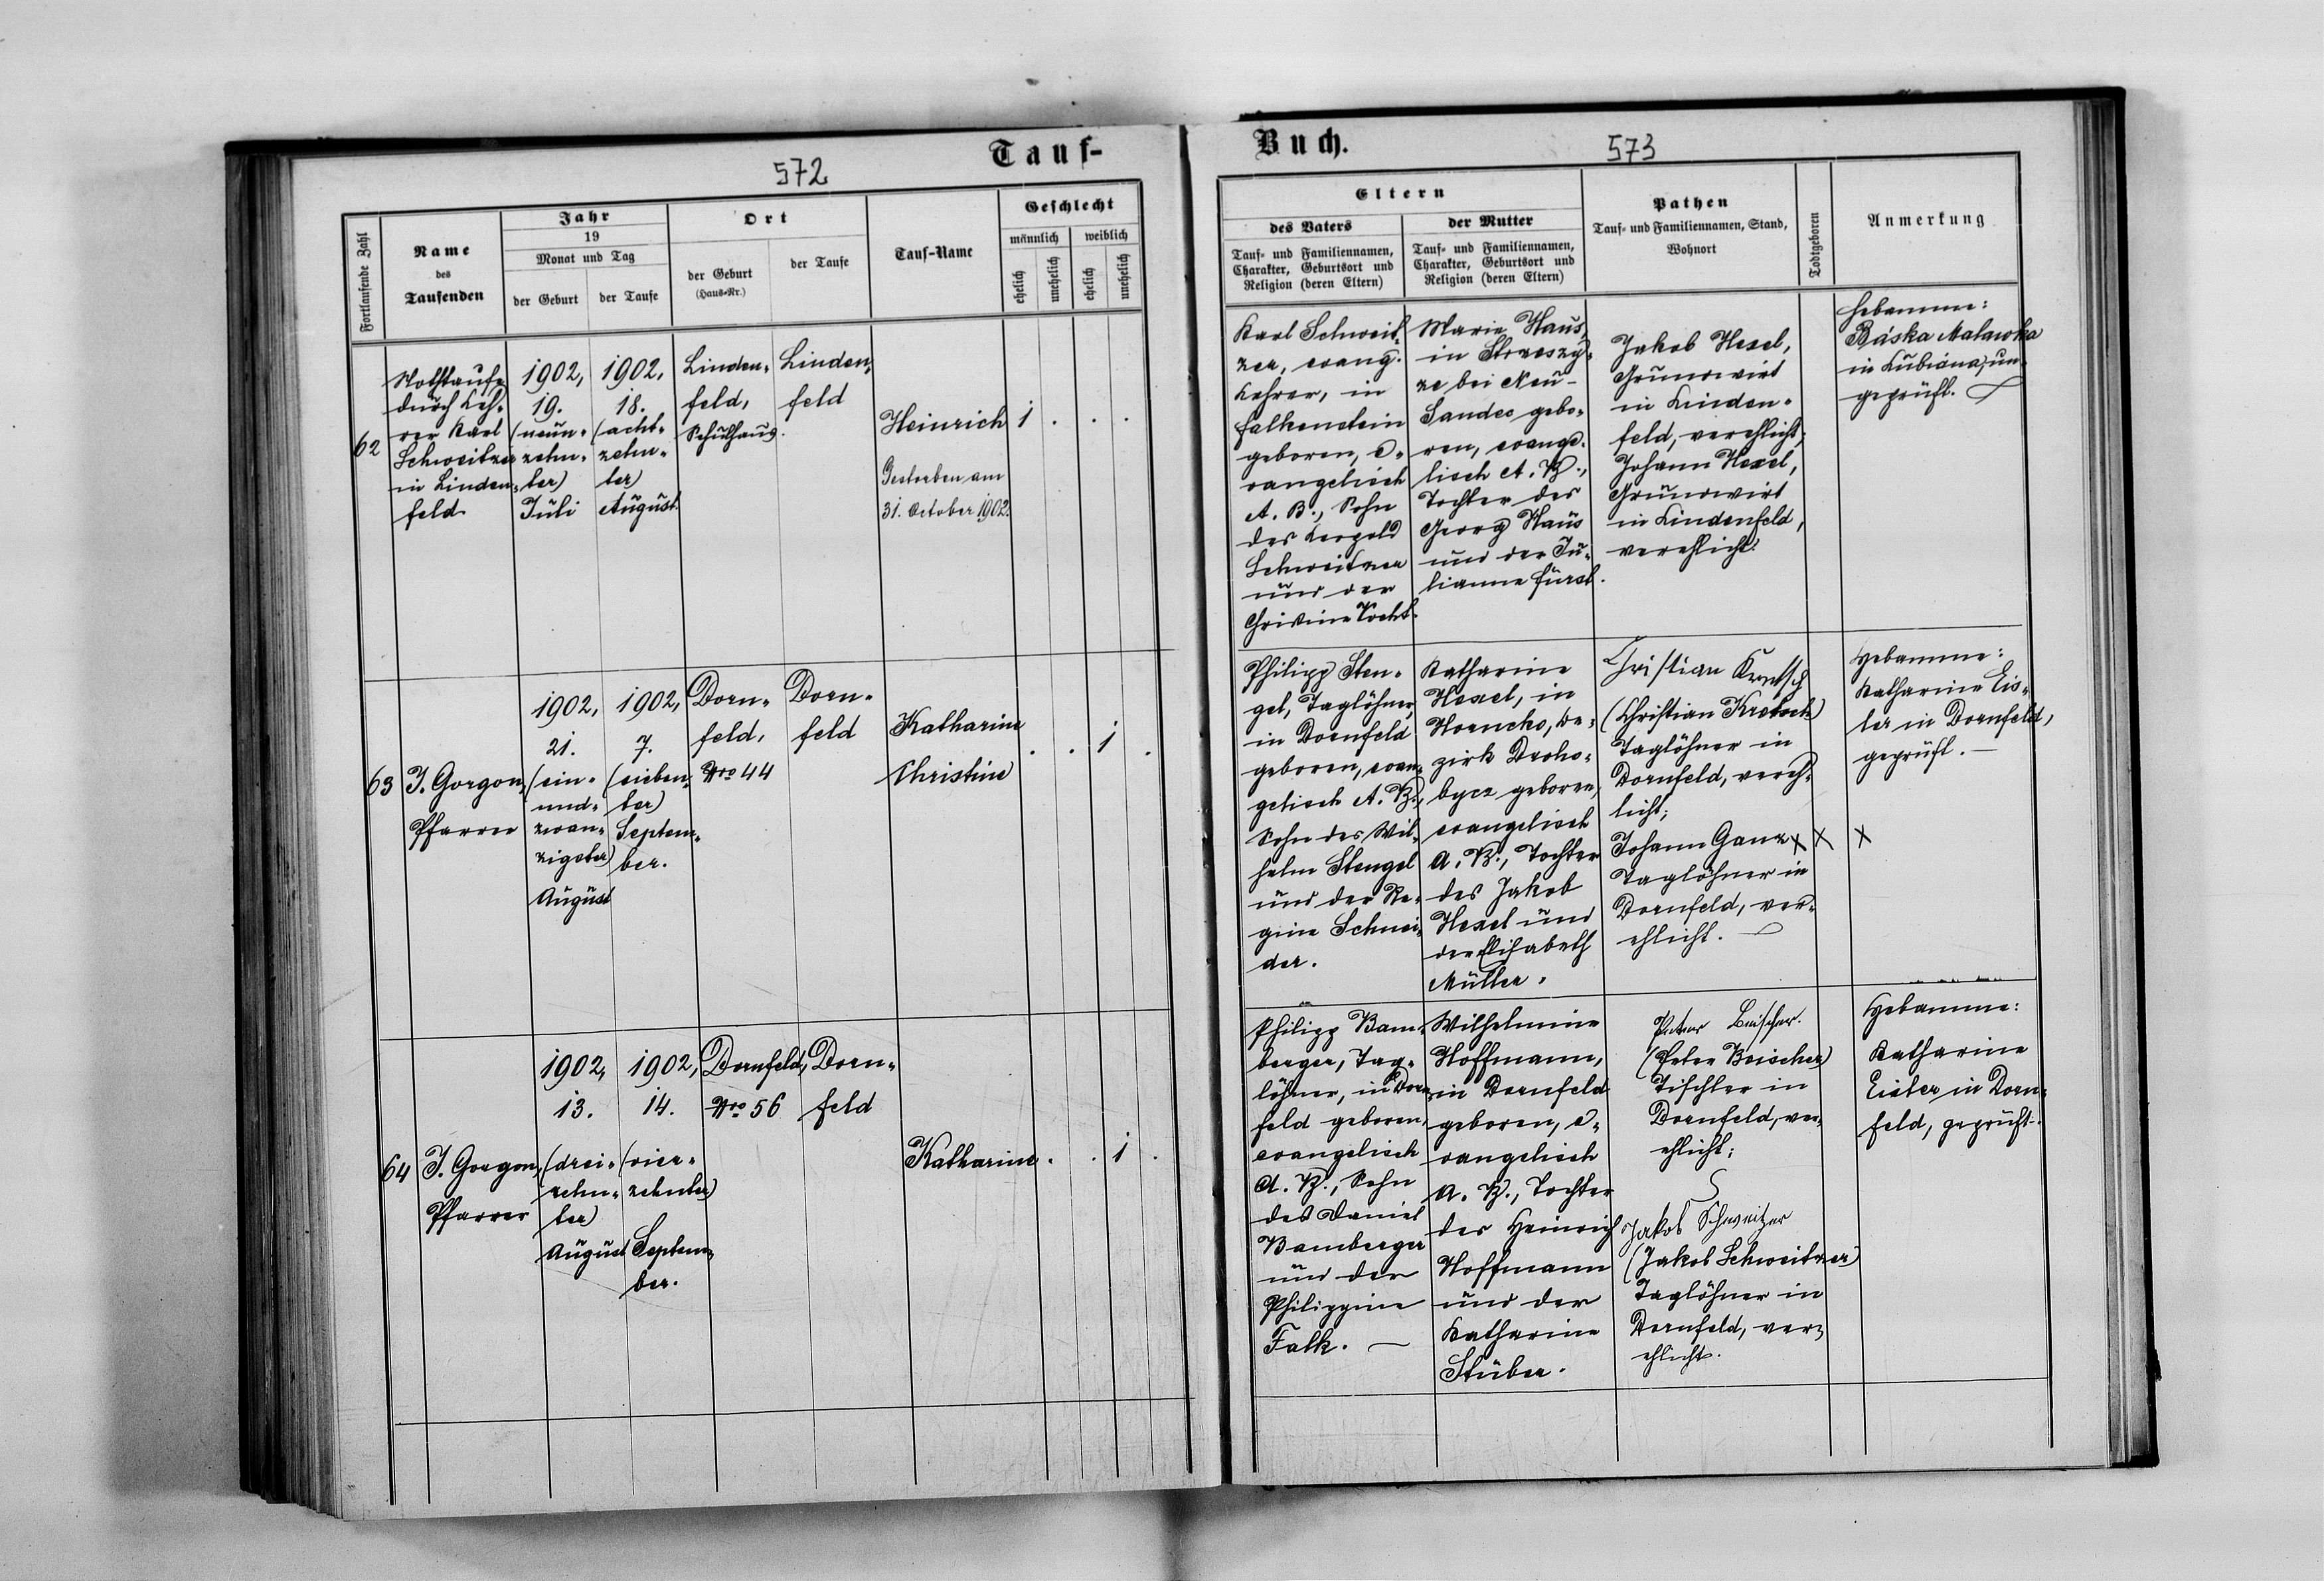 572
Tauf-
Fortlaufende Zahl
Name
des
Taufenden
Jahr
19
Monat und Tag
der Geburt
der Taufe
Ort
der Geburt
(Haus-Nr.)
der Taufe
Tauf-Name
Geschlecht
männlich
weiblich
ehelich
unehelich
ehelich
unehelich
62
Nothtaufe
durch Leh-
rer Karl
Schweitzer
in Linden-
feld
1902,
19.
(neun-
zehn-
ter)
Juli
1902,
18.
(acht-
zehn-
ter)
August.
Linden-
feld,
Schulhaus.
Linden-
feld
Heinrich
Gestorben am
31. October 1902.
1 . . .
63
J. Gorgon,
Pfarrer
1902,
21.
(ein-
und-
zwan-
zigster)
August
1902,
7.
(sieben-
ter)
Septem-
ber.
Dorn-
feld,
Nro 44
Dorn-
feld
Katharine
Christine
. . 1 .
64
J. Gorgon,
Pfarrer
1902,
13.
(drei-
zehn-
ter)
August
1902,
14.
(vier-
zehnter)
Septem-
ber.
Dornfeld,
Nro 56
Dorn-
feld
Katharine
. . 1 .
Buch.
573
Eltern
des Vaters
Tauf- und Familiennamen,
Charakter, Geburtsort und
Religion (deren Eltern)
der Mutter
Tauf- und Familiennamen,
Charakter, Geburtsort und
Religion (deren Eltern)
Pathen
Tauf- und Familiennamen, Stand,
Wohnort
Todtgeboren
Anmerkung
Karl Schweit-
zer, evang.
Lehrer, in
Falkenstein
geboren, e-
vangelisch
A. B., Sohn
des Leopold
Schweitzer
und der
Christine Kocht.
Marie Haus,
in
ze bei Neu-
Sandec gebo-
ren, evange-
lisch A. B.,
Tochter des
Georg Haus
und der Ju-
lianne Fürst.
Jakob Hexel,
Grundwirt
in Linden-
feld, verehlicht;
Johann Hexel,
Grundwirt
in Lindenfeld,
verehlicht.
Hebamme:
Báska Malawka
in Lubiana, un-
geprüft.
Philipp Sten-
gel, Taglöhner,
in Dornfeld
geboren, evan-
gelisch A. B.,
Sohn des Wil-
helm Stengel
und der Re-
gine Schnei-
der.
Katharine
Hexel, in
Horucko, Be-
zirk Droho-
bycz geboren,
evangelisch
A. B., Tochter
des Jakob
Hexel und
der Elisabeth
Müller.
Christian Kretsch
(Christian Kretsch)
Taglöhner in
Dornfeld, vereh-
licht;
Johann Ganz x x x
Taglöhner in
Dornfeld, ver-
ehlicht.
Hebamme:
Katharine Eis-
ler in Dornfeld,
geprüft.
Philipp Bam-
berger, Tag-
löhner, in Dorn-
feld geboren,
evangelisch
A. B., Sohn
des Daniel
Bamberger
und der
Philippine
Falk.
Wilhelmine
Hoffmann,
in Dornfeld
geboren, e-
vangelisch
A. B., Tochter
des Heinrich
Hoffmann
und der
Katharine
Stüber.
Peter Beischer.
(Peter Beischer)
Tischler in
Dornfeld, ver-
ehlicht;
Jakob Schweitzer
(Jakob Schweitzer)
Taglöhner in
Dornfeld, ver-
ehlicht.
Hebamme:
Katharine
Eisler in Dorn-
feld, geprüft.